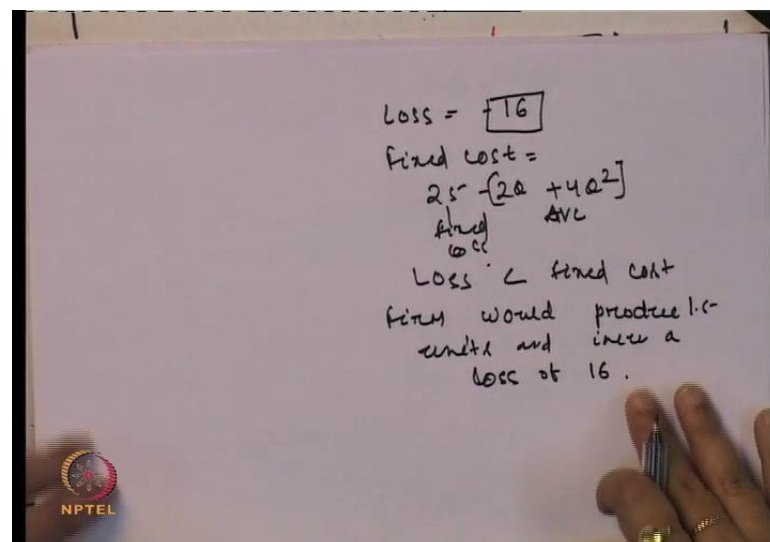 Loss = -16
fixed cost =
25 -[2Q + 4Q²]
fixed AVC
cost
Loss < fixed cost
firm would produce 1.5
units and incur a
loss of 16.
NPTEL